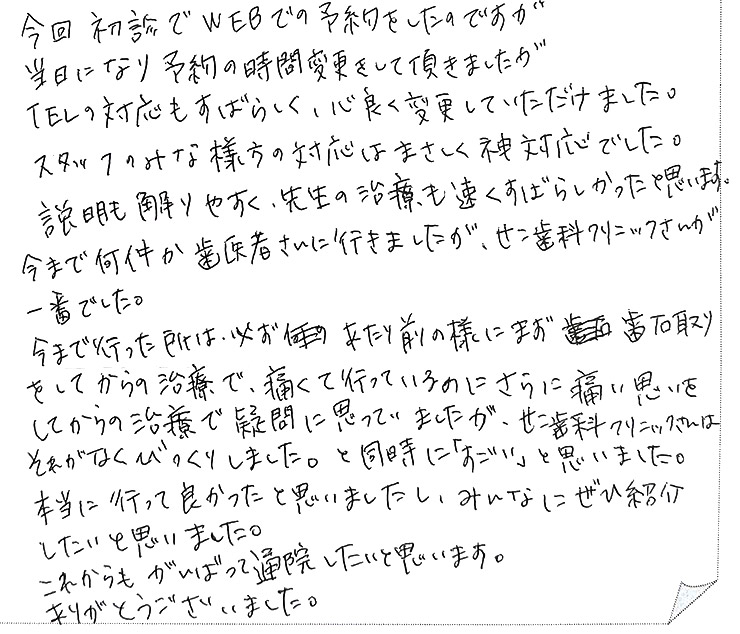 今回 初診でWEBでの予約をしたのですが
当日になり予約の時間変更をして頂きましたが
TELの対応もすばらしく、心良く変更していただけました。
スタッフのみな様方の対応はまさしく神対応でした。
説明も解りやすく、先生の治療も速くすばらしかったと思います。
今まで何件か歯医者さんに行きましたが、せこ歯科クリニックさんが
一番でした。
今まで行った所は、必ず 当たり前の様にまず 歯石取り
をしてからの治療で、痛くて行っているのにさらに痛い思いを
してからの治療で疑問に思っていましたが、せこ歯科クリニックさんは
それがなくびっくりしました。と同時に「すごい」と思いました。
本当に行って良かったと思いましたし、みんなにぜひ紹介
したいと思いました。
これからも がんばって通院したいと思います。
ありがとうございました。